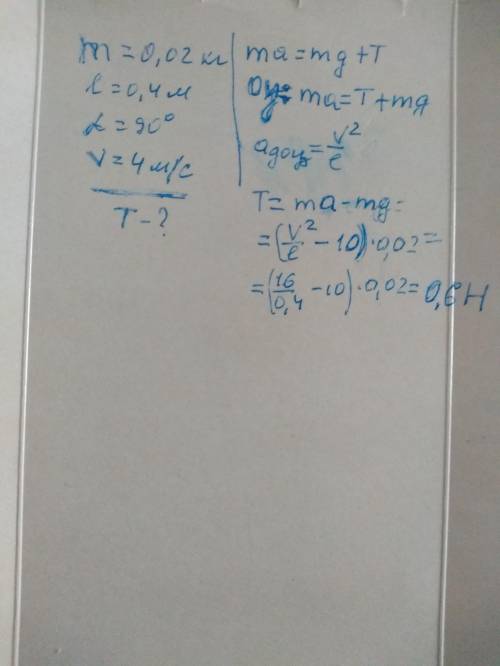 m = 0,02 кг
l = 0,4 м
α = 90°
v = 4 м/с
T - ?
ma = mg + T
Oy: ma = T + mg
aдоуз = v²/l
T = ma - mg =
= (v²/l - 10) · 0,02 =
= (16/0,4 - 10) · 0,02 = 0,6 Н